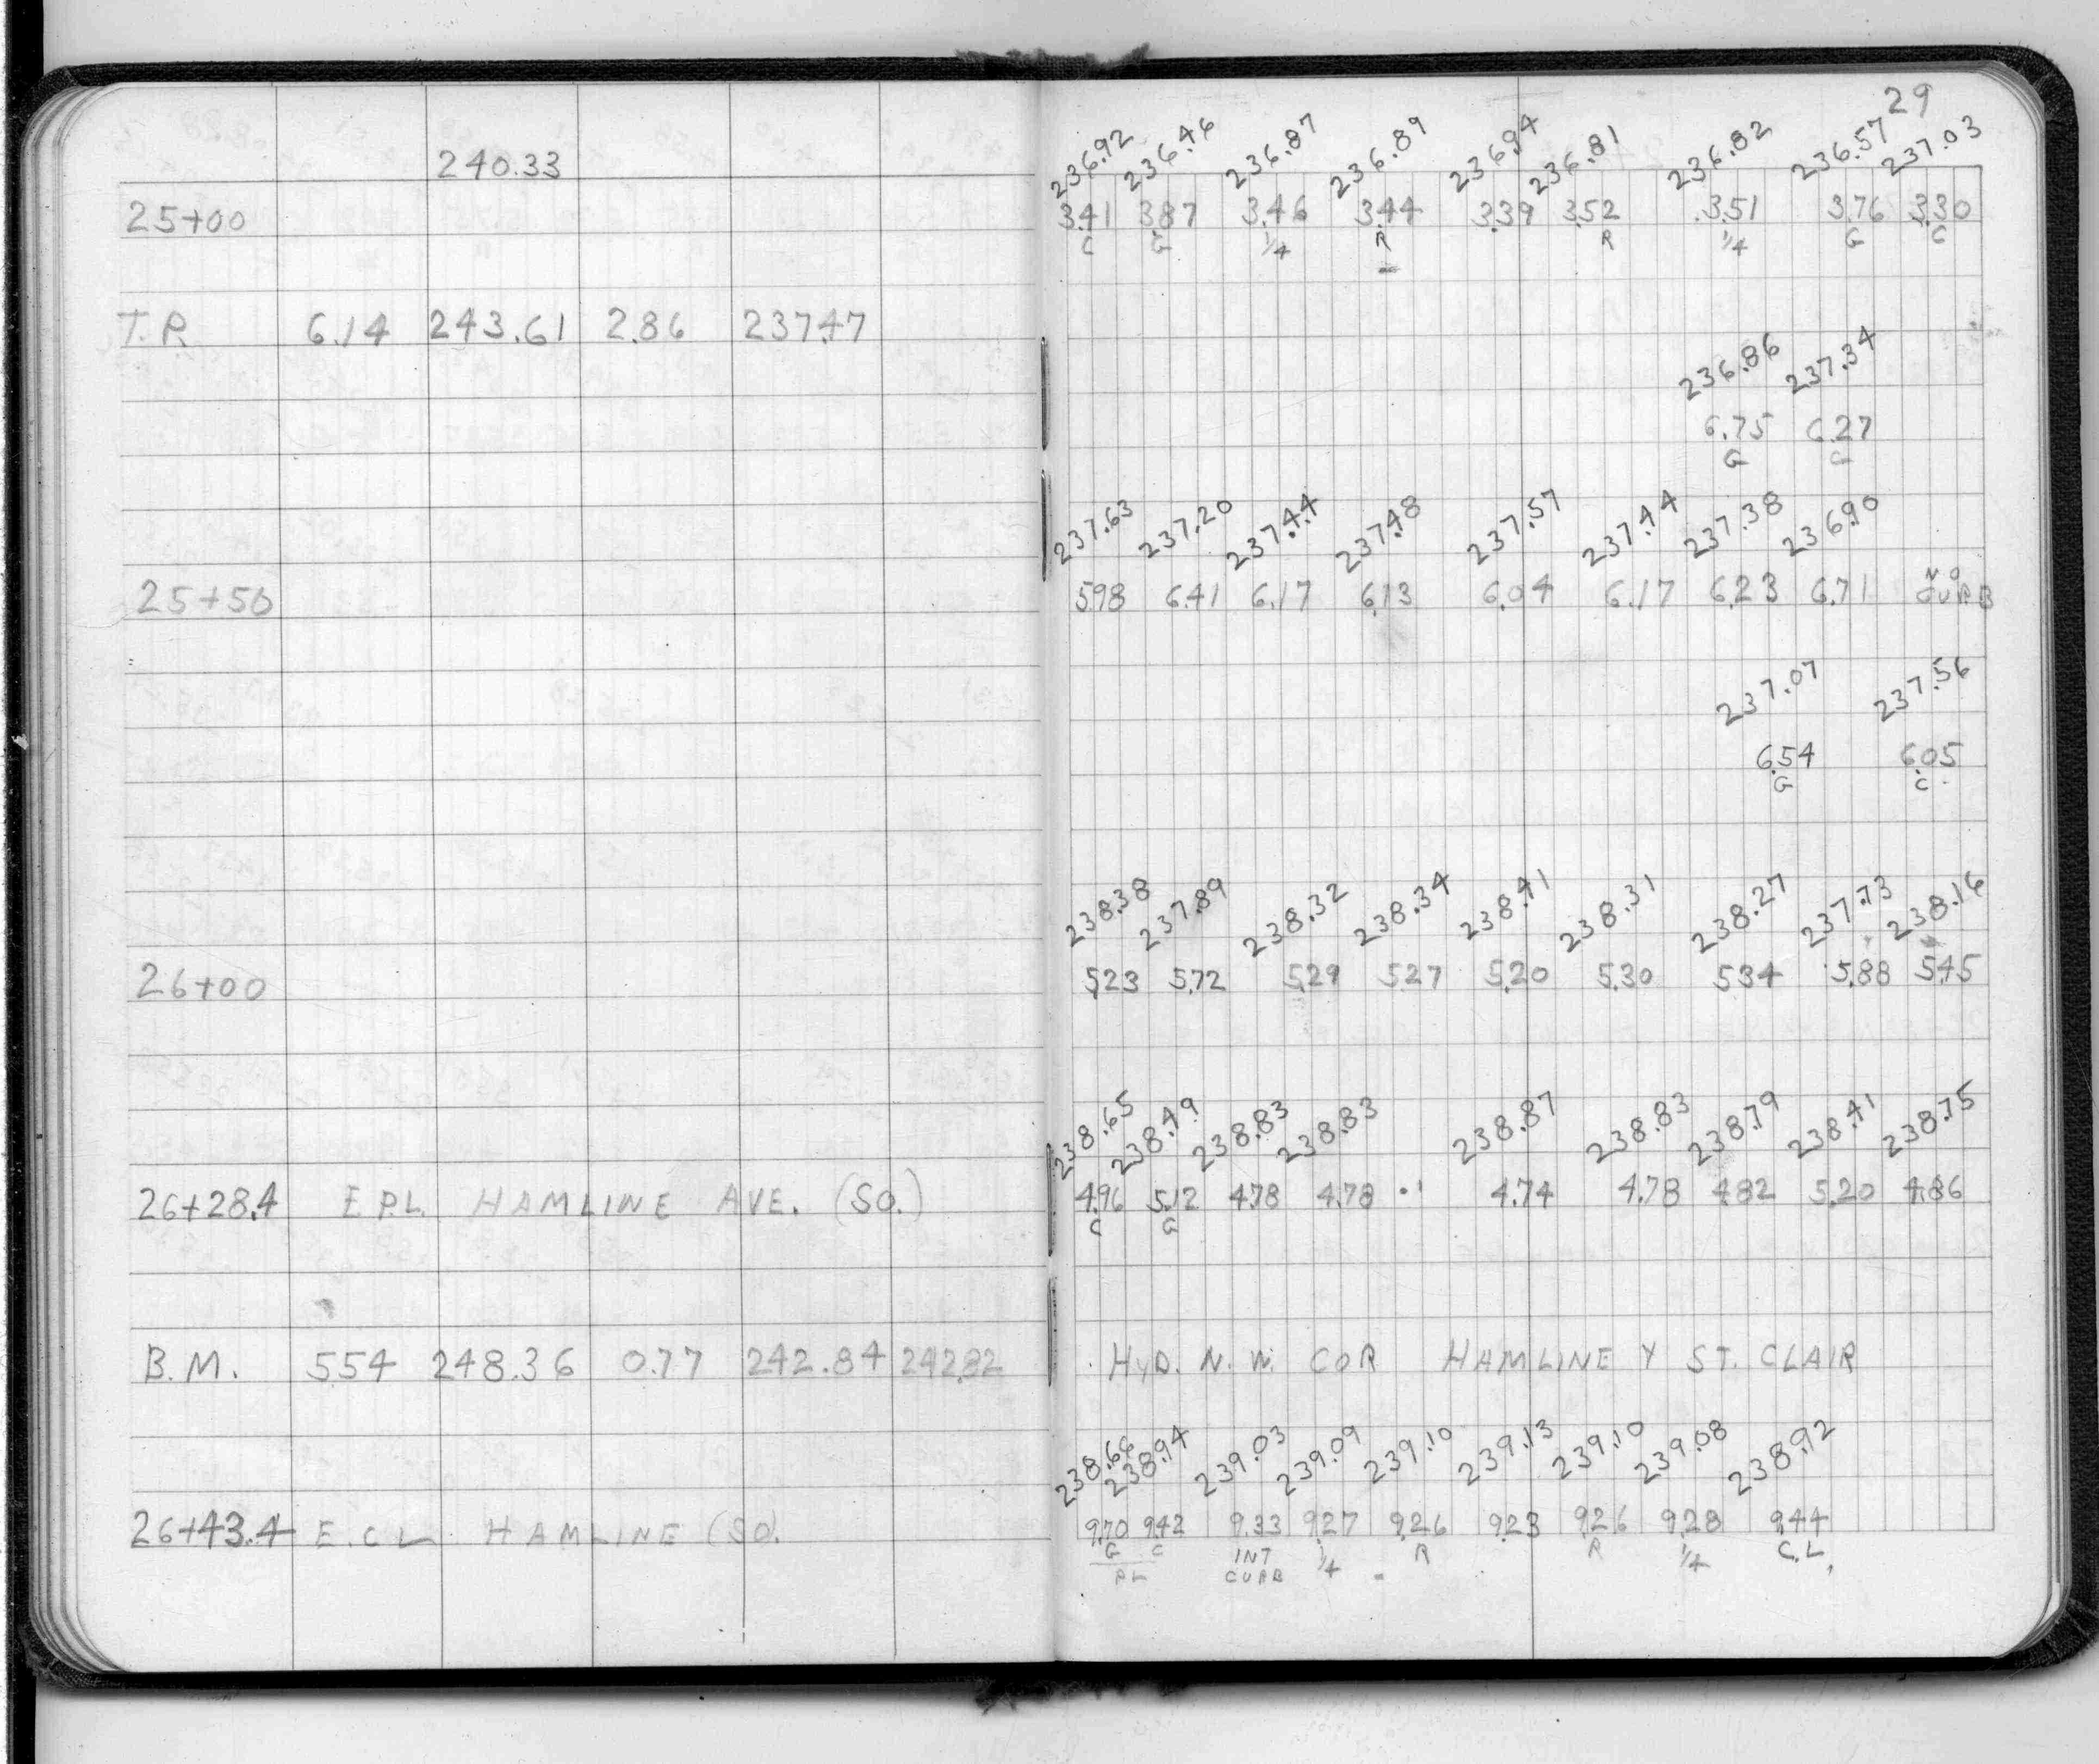 29
240.33
236.92 236.46 236.87 236.89 236.94 236.81 236.82 236.57 237.03
25+00 3.41 3.87 3.46 3.44 3.39 3.52 3.51 3.76 3.30
C G 1/4 R R 1/4 G C
T.P. 6.14 243.61 2.86 237.47
236.86 237.34
6.75 6.27
G C
237.63 237.20 237.44 237.48 237.57 237.44 237.38 236.90
25+50 5.98 6.41 6.17 6.13 6.04 6.17 6.23 6.71 NO CURB
237.07 237.56
6.54 6.05
G C
238.38 237.89 238.32 238.34 238.41 238.31 238.27 237.73 238.16
26+00 5.23 5.72 5.29 5.27 5.20 5.30 5.34 5.88 5.45
238.65 238.49 238.83 238.83 238.87 238.83 238.79 238.41 238.75
26+28.4 E.P.L. HAMLINE AVE. (SO.) 4.96 5.12 4.78 4.78 4.74 4.78 4.82 5.20 4.86
C G
B.M. 5.54 248.36 0.77 242.84 242.82 HYD. N.W. COR HAMLINE Y ST. CLAIR
238.66 238.94 239.03 239.09 239.10 239.13 239.10 239.08 238.92
26+43.4 E.C.L HAMLINE (SO. 9.70 9.42 9.33 9.27 9.26 9.23 9.26 9.28 9.44
G C INT 1/4 R R 1/4 C.L.
PL CURB